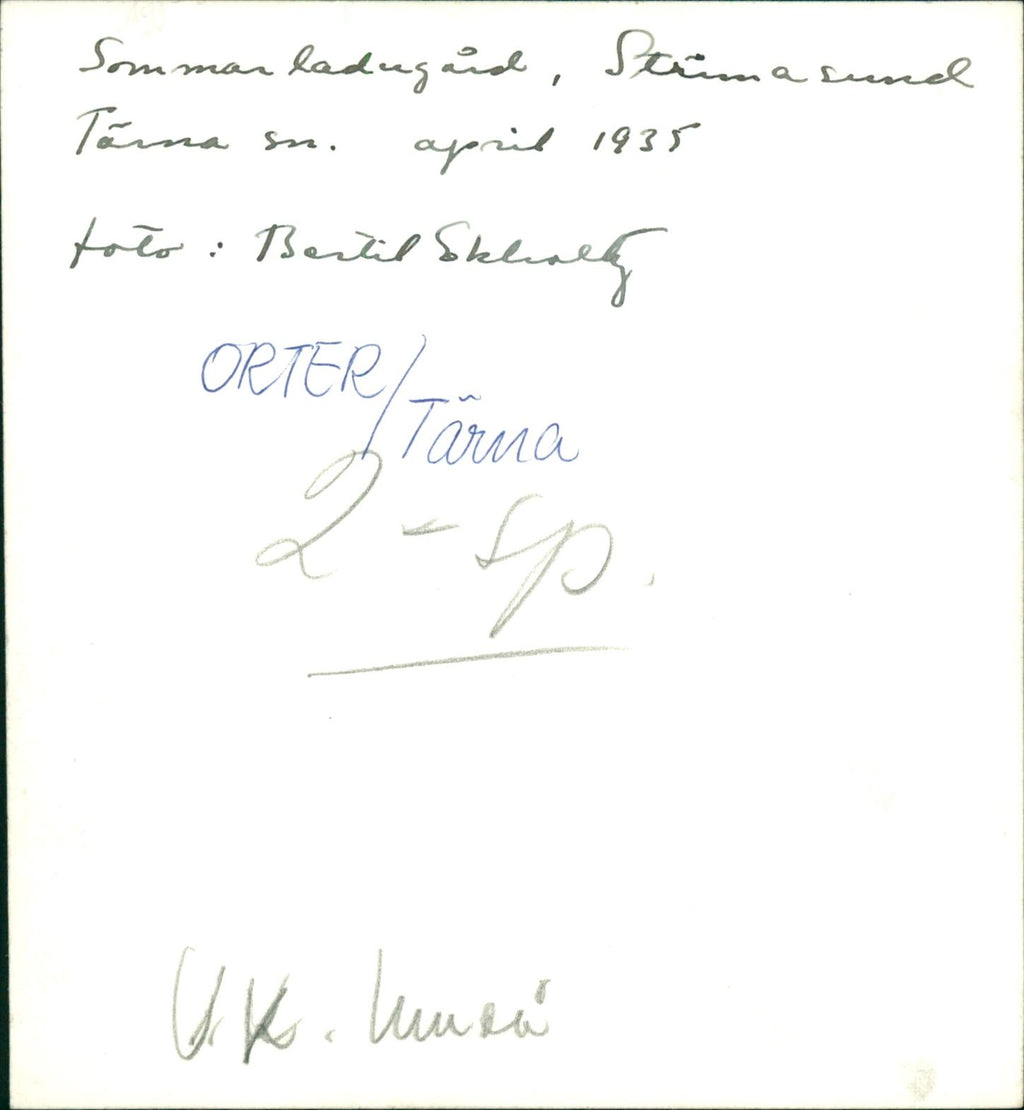 Sommarladugård, Strimasund
Tärna sn. april 1935
foto: Bertil Ekholtz
ORTER/
Tärna
2-sp.
V.K. Umeå